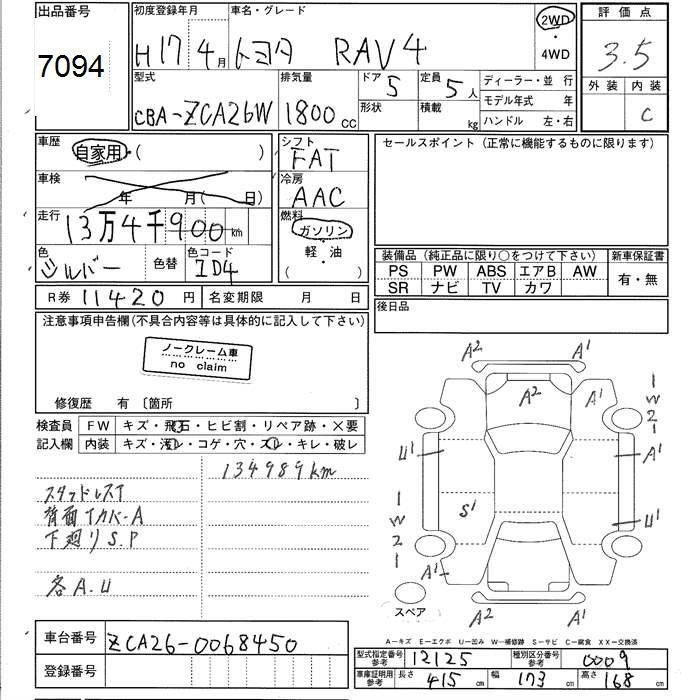 出品番号
7094
初度登録年月
H17 4月
車名・グレード
トヨタ RAV4
2WD
・
4WD
評価点
3.5
外装 内装
C
型式
CBA-ZCA26W
排気量
1800 cc
ドア 5
形状
定員 5人
積載 kg
ディーラー・並 行
モデル年式 年
ハンドル 左・右
車歴
自家用・( )
車検
年 月( 日)
走行
13万4千900km
色
シルバー
色替
色コード
1D4
シフト
FAT
冷房
AAC
燃料
ガソリン
軽・油
( )
セールスポイント (正常に機能するものに限ります)
装備品 (純正品に限り○をつけて下さい)
PS PW ABS エアB AW
SR ナビ TV カワ
新車保証書
有・無
R券 11420 円
名変期限 月 日
後日品
注意事項申告欄(不具合内容等は具体的に記入して下さい)
ノークレーム車
no claim
修復歴 有 〔箇所 〕
検査員
記入欄
FW キズ・飛石・ヒビ割・リペア跡・X要
内装 キズ・汚レ・コゲ・穴・スレ・キレ・破レ
134989km
スタッドレスT
背面TカバーA
下廻りS.P
各A.U
A2 A1
A2 A1
1
W
2
1
U1 A1
S1
1
W
2
1
U1
A1
スペア
A2 A1
車台番号
ZCA26-0068450
登録番号
A-キズ E-エクボ U-凹み W-補修跡 S-サビ C-腐食 XX-交換済
型式指定番号
参考
12125
種別区分番号
参考
0009
車庫証明用
参考
長さ 415 cm
幅 173 cm
高さ 168 cm